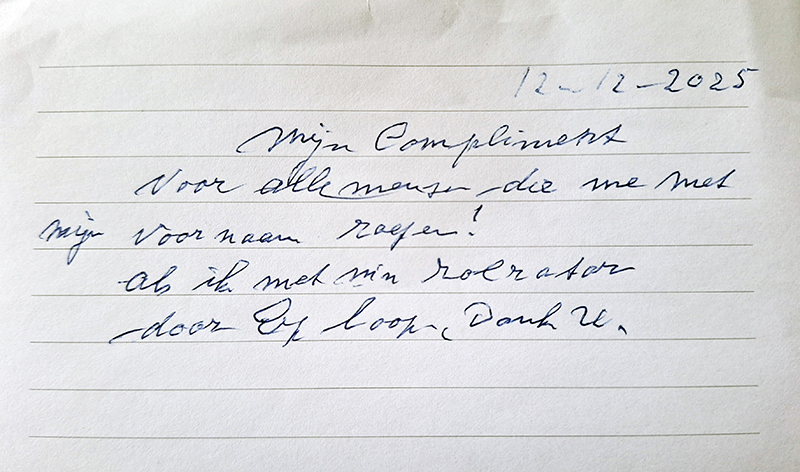 12-12-2025
Mijn Compliment
Voor alle mensen die me met
mijn voornaam roepen!
als ik met min rolrator
door loop, Dank U.